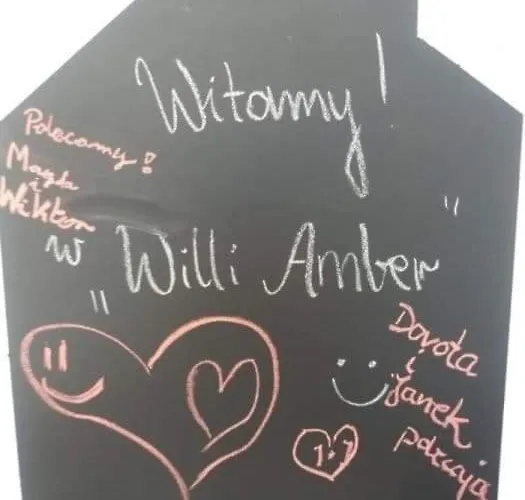 Witamy!
Polecamy!
Magda
i
Wiktor
w „Willi Amber"
Dorota
i
Janek